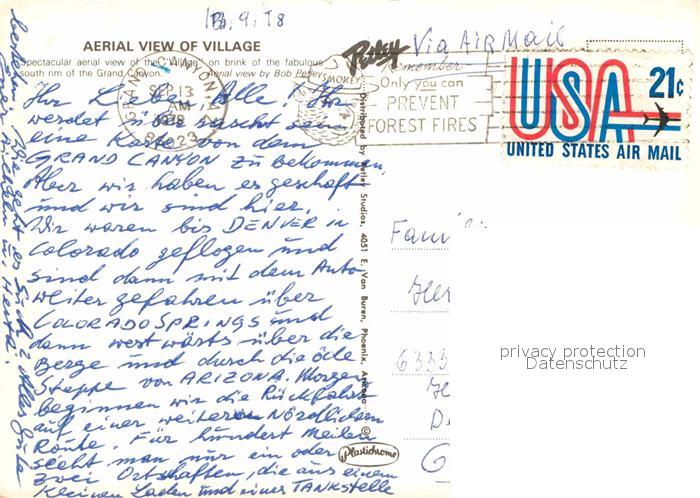 13.9.78
AERIAL VIEW OF VILLAGE
Spectacular aerial view of the "Village" on brink of the fabulous
south rim of the Grand Canyon. Aerial view by Bob Petley
Petley
Via Air Mail
GRAND CANYON
SEP 13
AM
1978
86023
SMOKEY
Remember
Only you can
PREVENT
FOREST FIRES
USA 21c
UNITED STATES AIR MAIL
Ihr Lieben Alle! Ihr
werdet überrascht sein
eine Karte von dem
GRAND CANYON zu bekommen.
Aber wir haben es geschaft
und wir sind hier.
Wir waren bis DENVER in
Colorado geflogen und
sind dann mit dem Auto
weiter gefahren über
COLORADO SPRINGS und
dann westwärts über die
Berge und durch die öde
Steppe von ARIZONA. Morgen
beginnen wir die Rückfahrt
auf einer weiteren Nördlichen
Route. Für hundert Meilen
sieht man nur ein oder
zwei Ortschaften, die aus einem
kleinen Laden und einer TANKSTELLE
bestehen. Wie geht es Euch? Alles Gute
Euer Wilhelm u. Herta.
Distributed by Petley Studios, 4051 E. Van Buren, Phoenix, Arizona
©
Plastichrome
Fami
6333
privacy protection
Datenschutz